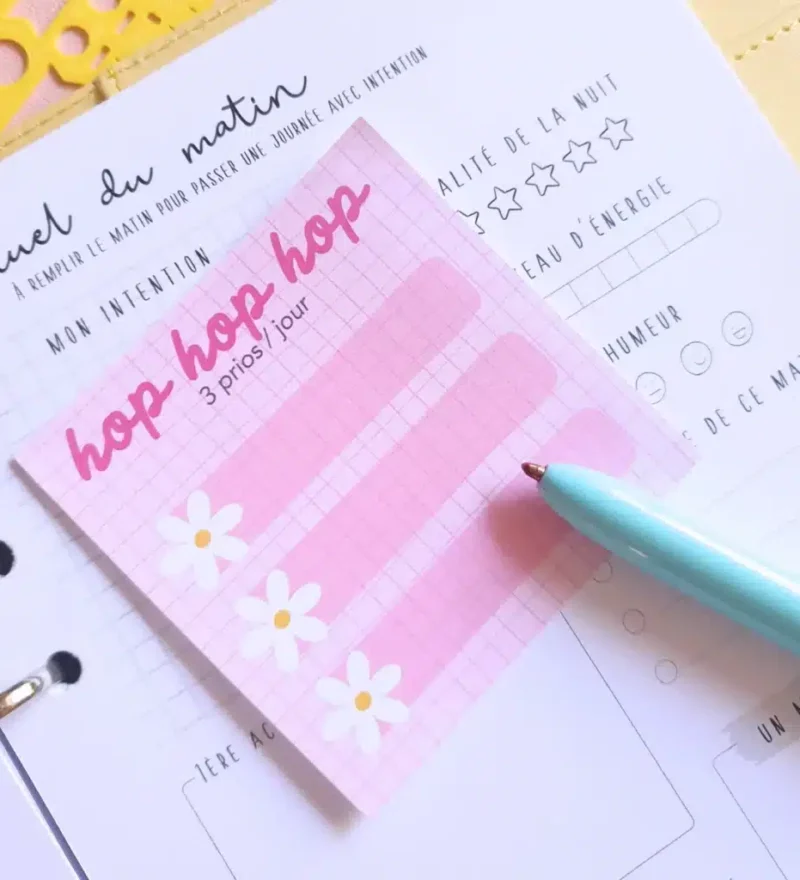 du matin
À REMPLIR LE MATIN POUR PASSER UNE JOURNÉE AVEC INTENTION
MON INTENTION
hop hop hop
3 prios / jour
ALITÉ DE LA NUIT
EAU D'ÉNERGIE
HUMEUR
DE CE MA
1ÈRE AC
UN